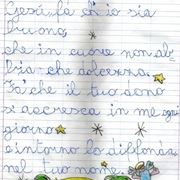 Gesù, fa ch'io sia
buono,
che in cuore non ab
bia che dolcezza.
Fa' che il tuo dono
s'accresca in me ogni
giorno
e intorno lo diffonda
nel tuo nome.